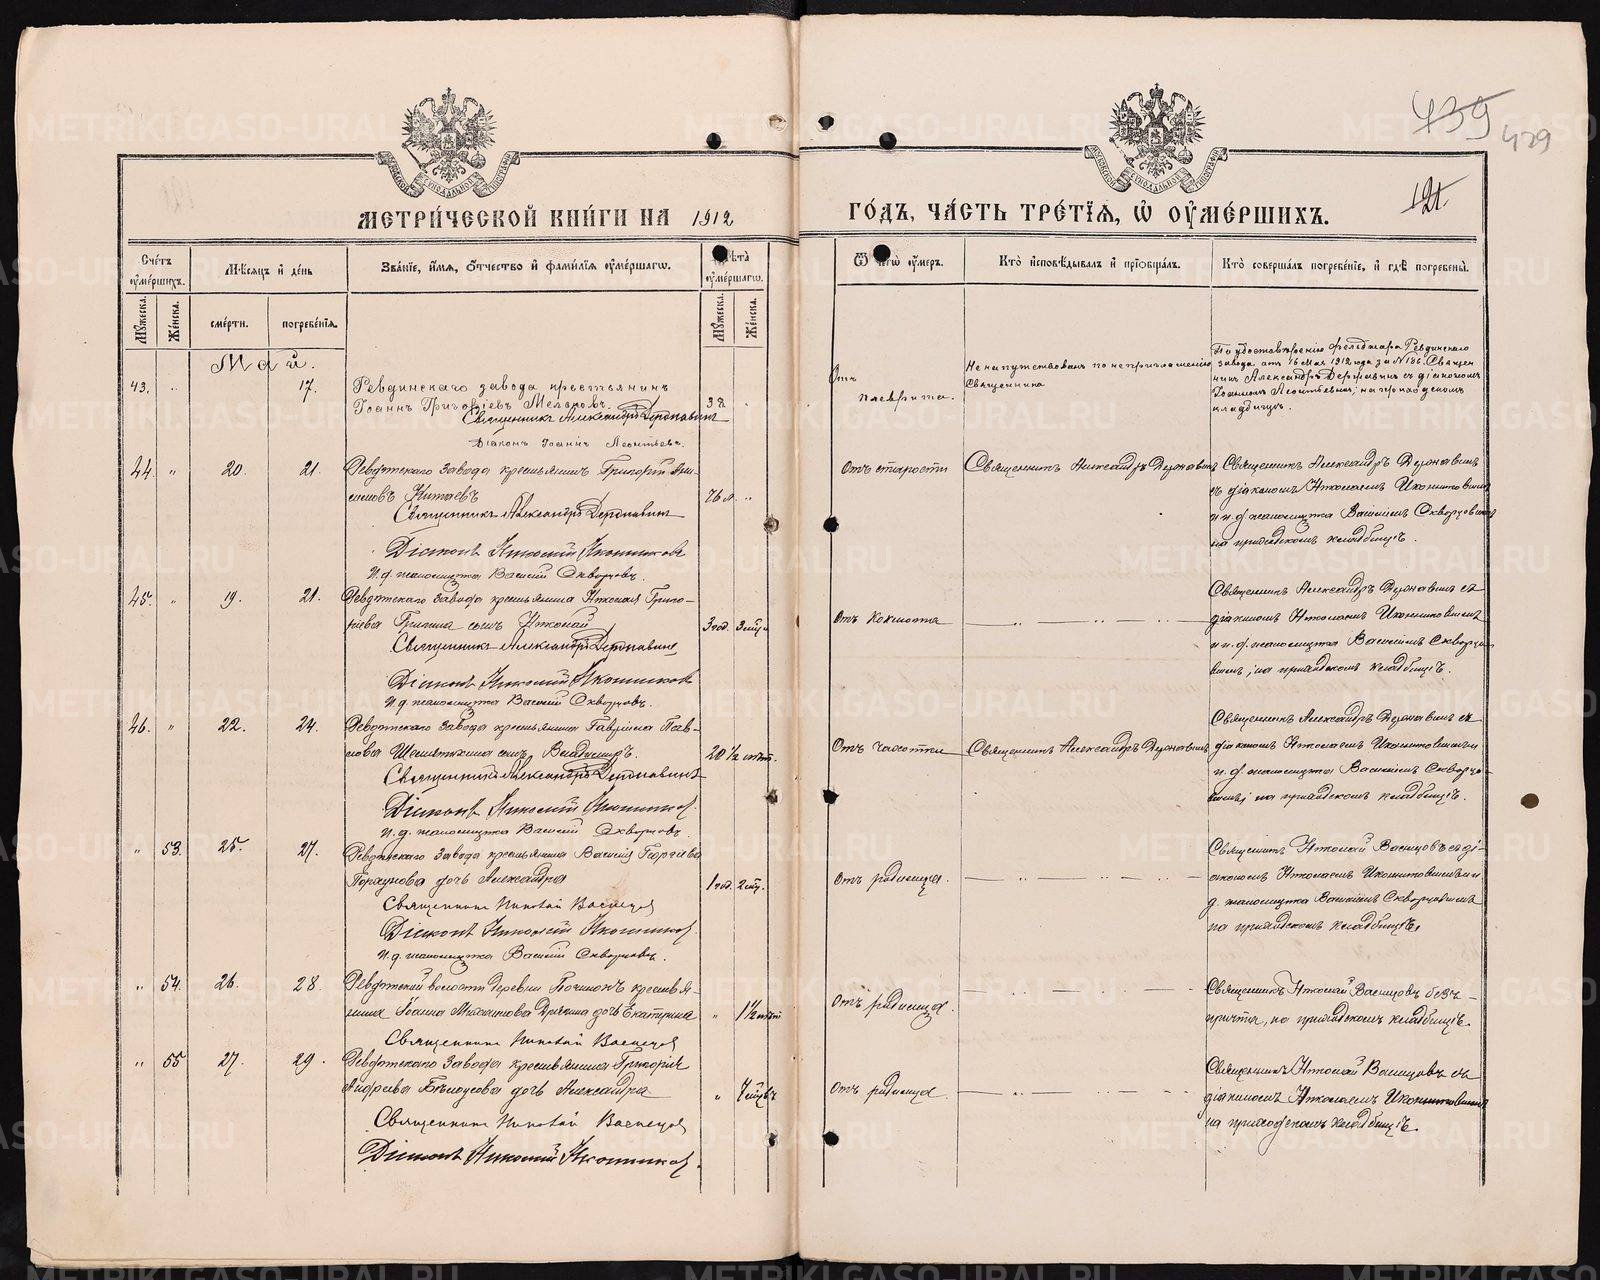 439
429
121.
МЕТРИ́ЧЕСКОЙ КНИ́ГИ НА 1912
ГО́ДЪ, ЧА́СТЬ ТРЕ́ТІѦ, Ѡ҆ ОУ҆МЕ́РШИХЪ.
Сче́тъ оу҆ме́ршихъ.
Мѣ́сяцъ и де́нь
Зва́ніе, и҆́мѧ, ѻ҆́тчество и҆ фамі́лїѧ оу҆ме́ршагѡ.
Лѣ́та оу҆ме́ршагѡ.
Ѿ чегѡ̀ оу҆ме́ръ.
Кто̀ и҆сповѣ́дывалъ и҆ прїѡбща́лъ.
Кто̀ соверша́лъ погребе́нїе, и҆ гдѣ̀ погребены̀.
Мꙋ́жеска.
Же́нска.
сме́рти.
погребе́нїѧ.
Мꙋ́жеска.
Же́нска.
Май.
43. " 17. Ревдинскаго завода крестьянинъ
Іоаннъ Григоріевъ
Священникъ Александръ Державинъ
Діаконъ Іоаннъ Леонтьевъ.
Отъ
плеврита.
Не напутствованъ по неприглашенію
Священника
По удостовѣренію фельдшера Ревдинскаго
завода отъ 16 Мая 1912 года за № 186. Священ
никъ Александръ Державинъ съ діакономъ
Іоанномъ Леонтьевымъ, на приходскомъ
кладбищѣ.
44. " 20. 21. Ревдинскаго Завода крестьянинъ Григорій
Китаевъ 76 л. "
Священникъ Александръ Державинъ
Діаконъ Николай Иконниковъ
И.д. псаломщика Василій Скворцовъ.
Отъ старости
Священникъ Александръ Державинъ
Священникъ Александръ Державинъ
съ діакономъ Николаемъ Иконниковымъ
и и.д. псаломщика Василіемъ Скворцовымъ
на приходскомъ кладбищѣ.
45. " 19. 21. Ревдинскаго Завода крестьянина Николая Григо-
ріева сынъ Николай 3 год. 3 мѣц.
Священникъ Александръ Державинъ
Діаконъ Николай Иконниковъ
И.д. псаломщика Василій Скворцовъ.
Отъ Коклюша
Священникъ Александръ Державинъ съ
діакономъ Николаемъ Иконниковымъ
и и.д. псаломщика Василіемъ Скворцо-
вымъ, на приходскомъ кладбищѣ.
46. " 22. 24. Ревдинскаго Завода крестьянина Гавріила Пав-
лова сынъ Владиміръ. 20 ½ лѣтъ.
Священникъ Александръ Державинъ
Діаконъ Николай Иконниковъ
И.д. псаломщика Василій Скворцовъ.
Отъ чахотки
Священникъ Александръ Державинъ
Священникъ Александръ Державинъ съ
діакономъ Николаемъ Иконниковымъ и
и.д. псаломщика Василіемъ Скворцо-
вымъ на приходскомъ кладбищѣ.
" 53. 25. 27. Ревдинскаго Завода крестьянина Василія Георгіева
дочь Александра 1 год. 2 мѣц.
Священникъ Николай Васнецов
Діаконъ Николай Иконников.
И.д. псаломщика Василій Скворцовъ.
Отъ родимца.
Священникъ Николай Васнецовъ съ ді-
акономъ Николаемъ Иконниковымъ и и
д. псаломщика Василіемъ Скворцовымъ
на приходскомъ кладбищѣ.
" 54. 26. 28. Ревдинской волости деревни Починокъ крестья-
нина Іоанна дочь Екатерина " 1½ лѣтъ
Священникъ Николай Васнецов
Отъ родимца.
Священникъ Николай Васнецовъ безъ
причта, на приходскомъ кладбищѣ.
" 55 27. 29. Ревдинскаго Завода крестьянина Григорія
Андреева Бѣлоусова дочь Александра " 7 мѣц.
Священникъ Николай Васнецов
Діаконъ Николай Иконников.
Отъ родимца
Священникъ Николай Васнецовъ съ
діакономъ Николаемъ Иконниковымъ
на приходскомъ кладбищѣ.
METRIKI.GASO-URAL.RU